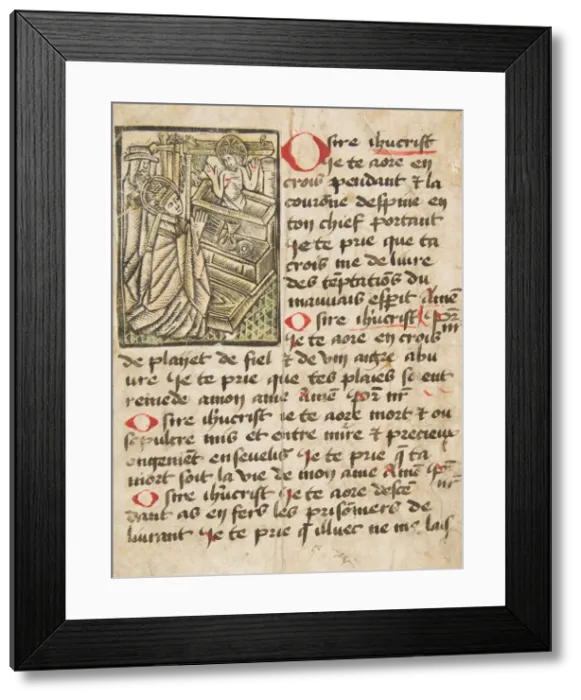 O sire ihucrist
ie te aore en
crois pendant & la
couronne despine en
ton chief portant
Je te prie que ta
crois me deliure
des tēptatiōs du
mauuais esperit Amē
O sire ihucrist pr̄ nr̄
ie te aore en crois
de playet de fiel & de vin aigre abu
ure Je te prie que tes plaies soient
remede a mon ame Amē pr̄ nr̄
O sire ihucrist ie te aore mort & ou
sepulcre mis et entre mire & precieux
ongemēt enseuelis Je te prie q̄ ta
mort soit la vie de mon ame Amē pr̄ nr̄
O sire ihucrist Je te aore descē
dant as enfers les prisonniers de
liurant Je te prie q̄ illuec ne me lais